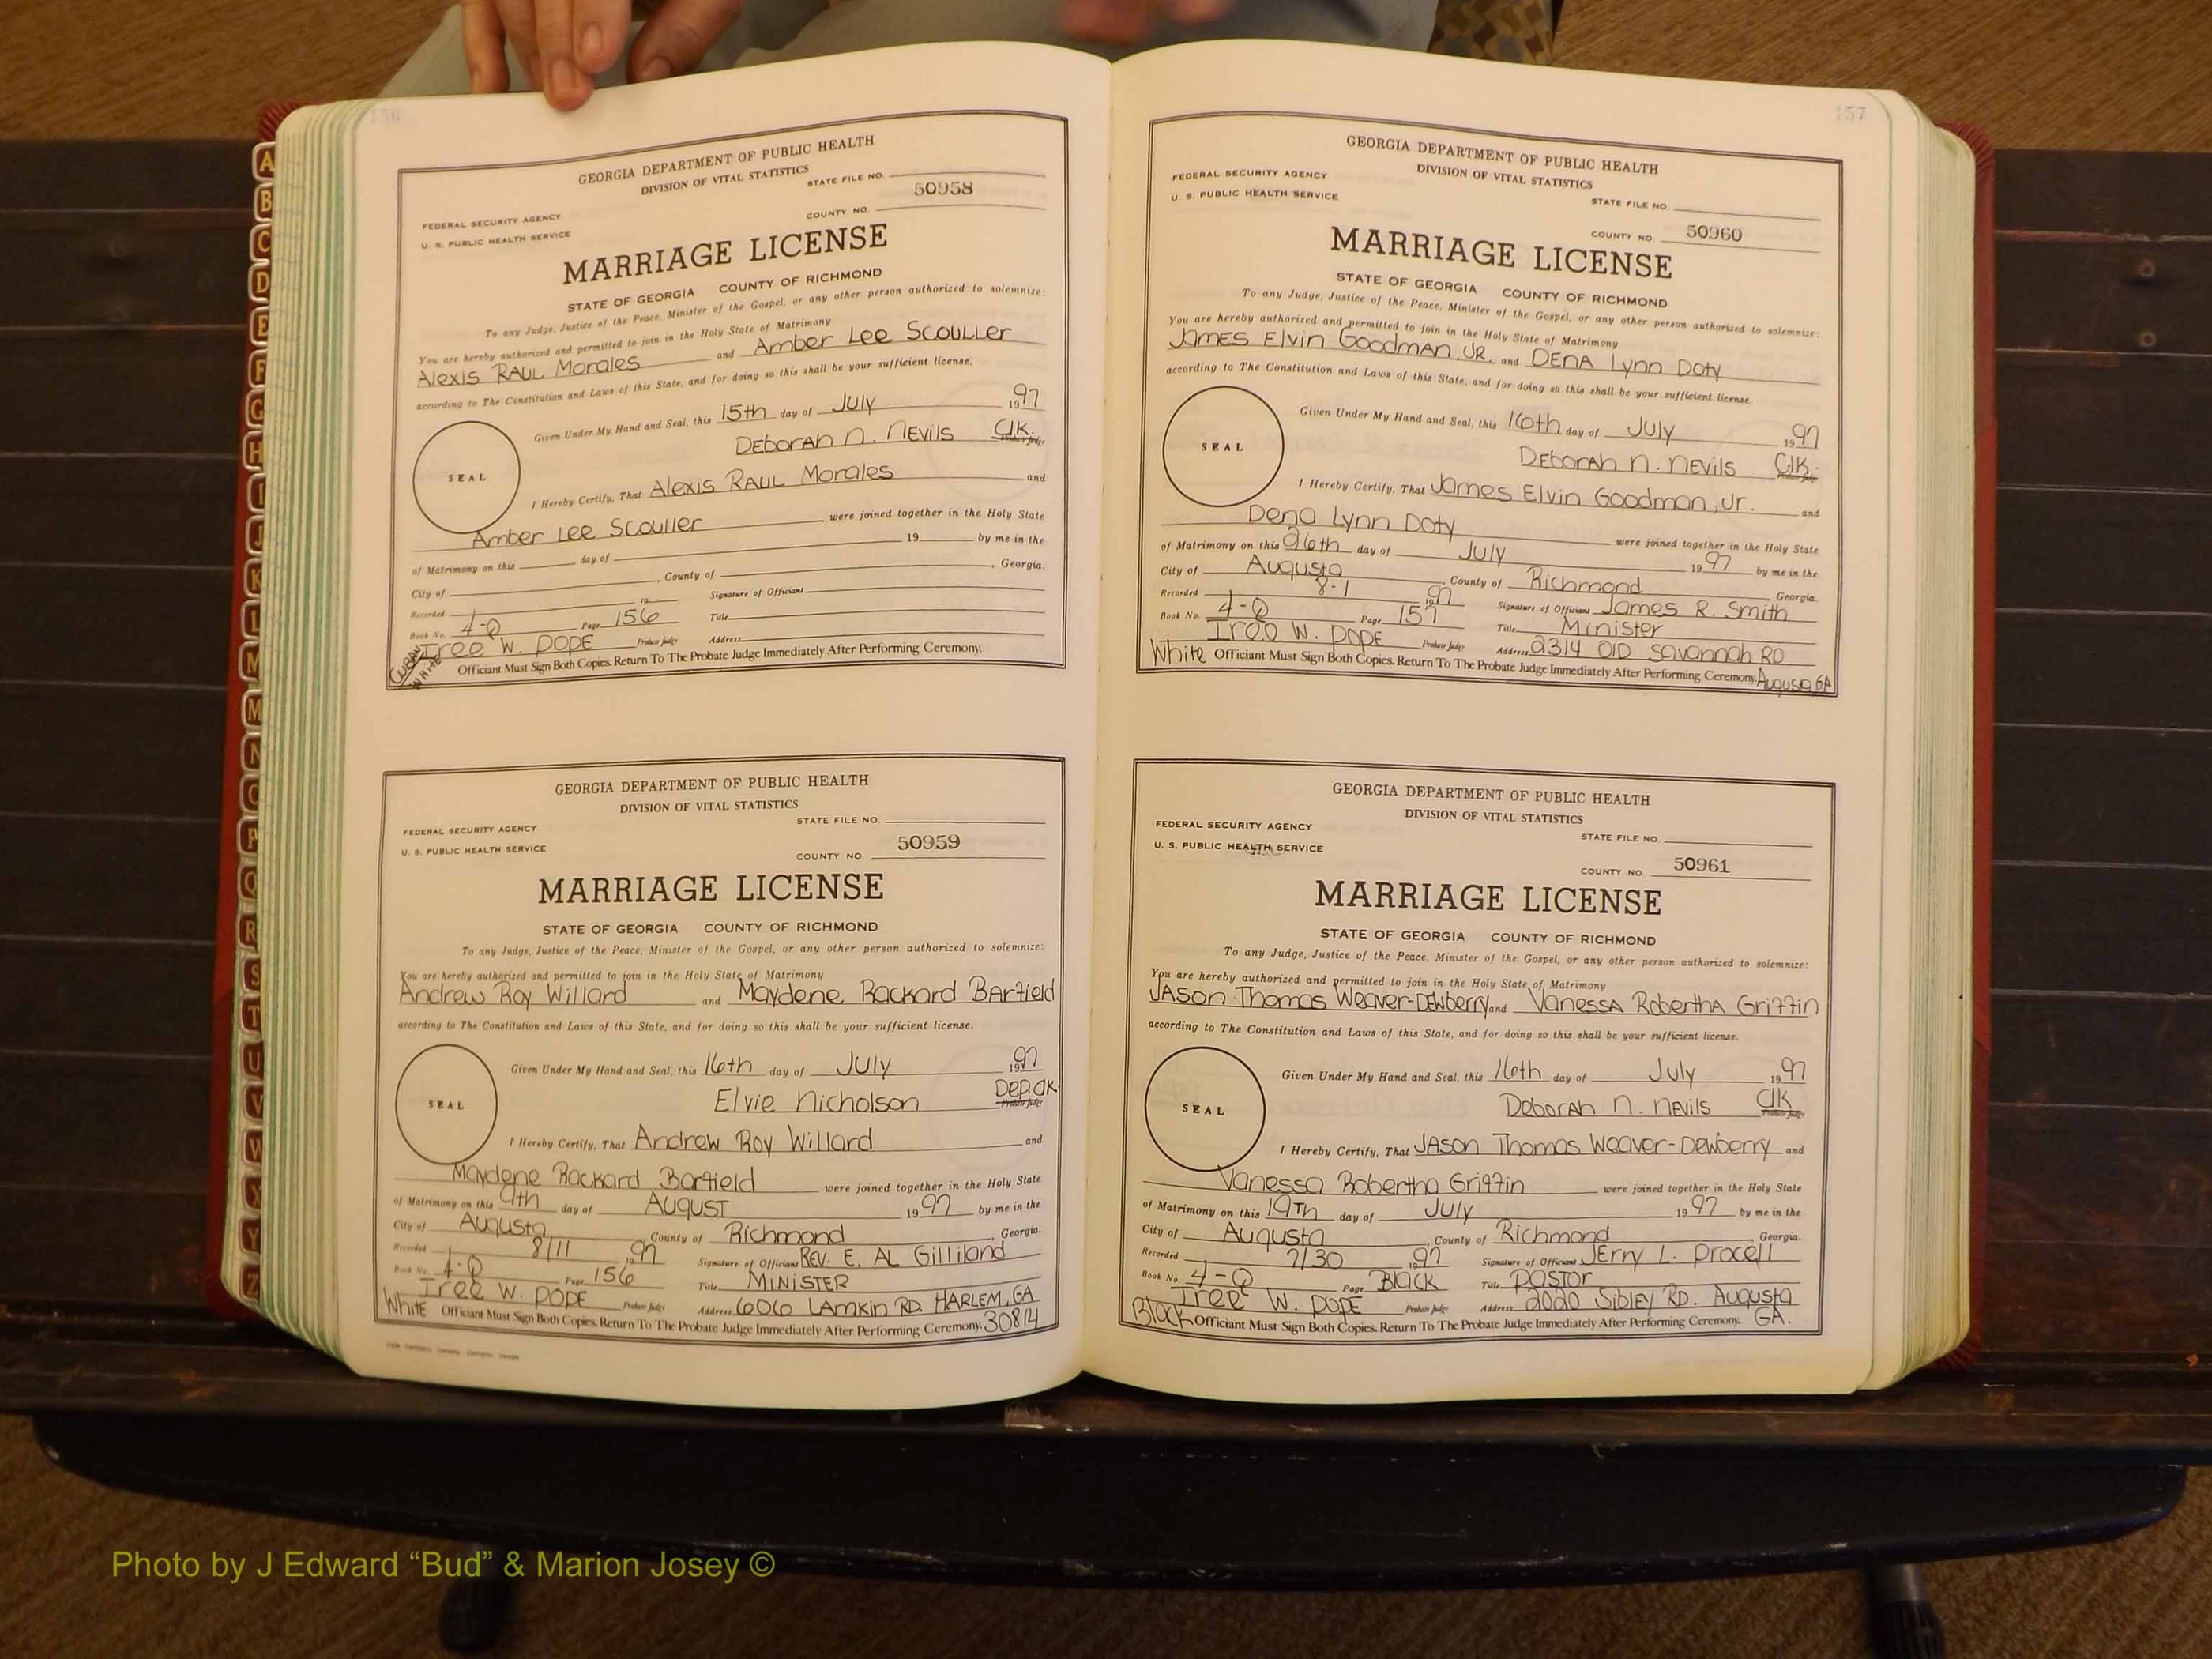 156
GEORGIA DEPARTMENT OF PUBLIC HEALTH
DIVISION OF VITAL STATISTICS
STATE FILE NO.
FEDERAL SECURITY AGENCY
U. S. PUBLIC HEALTH SERVICE
COUNTY NO. 50958
MARRIAGE LICENSE
STATE OF GEORGIA COUNTY OF RICHMOND
To any Judge, Justice of the Peace, Minister of the Gospel, or any other person authorized to solemnize:
You are hereby authorized and permitted to join in the Holy State of Matrimony
Alexis RAUL Morales and Amber Lee Scouller
according to The Constitution and Laws of this State, and for doing so this shall be your sufficient license.
Given Under My Hand and Seal, this 15th day of July 1997
Deborah N. Nevils Clk. Probate Judge
SEAL
I Hereby Certify, That Alexis RAUL Morales and
Amber Lee Scouller were joined together in the Holy State
of Matrimony on this day of 19 by me in the
City of , County of , Georgia.
Recorded 19 Signature of Officiant
Book No. 4-Q Page 156 Title
Iree W. Pope Probate Judge Address
CUBAN WHITE
Officiant Must Sign Both Copies. Return To The Probate Judge Immediately After Performing Ceremony.
GEORGIA DEPARTMENT OF PUBLIC HEALTH
DIVISION OF VITAL STATISTICS
STATE FILE NO.
FEDERAL SECURITY AGENCY
U. S. PUBLIC HEALTH SERVICE
COUNTY NO. 50959
MARRIAGE LICENSE
STATE OF GEORGIA COUNTY OF RICHMOND
To any Judge, Justice of the Peace, Minister of the Gospel, or any other person authorized to solemnize:
You are hereby authorized and permitted to join in the Holy State of Matrimony
Andrew Roy Willard and Maydene Rackard Barfield
according to The Constitution and Laws of this State, and for doing so this shall be your sufficient license.
Given Under My Hand and Seal, this 16th day of July 1997
Elvie Nicholson Dep. Clk Probate Judge
SEAL
I Hereby Certify, That Andrew Roy Willard and
Maydene Rackard Barfield were joined together in the Holy State
of Matrimony on this 9th day of AUGUST 1997 by me in the
City of Augusta, County of Richmond, Georgia.
Recorded 8/11 1997 Signature of Officiant REV. E. AL Gilliland
Book No. 4-Q Page 156 Title MINISTER
Iree W. Pope Probate Judge Address 606 LAMKIN RD. HARLEM, GA
White Officiant Must Sign Both Copies. Return To The Probate Judge Immediately After Performing Ceremony. 30814
157
GEORGIA DEPARTMENT OF PUBLIC HEALTH
DIVISION OF VITAL STATISTICS
FEDERAL SECURITY AGENCY
U. S. PUBLIC HEALTH SERVICE
STATE FILE NO.
COUNTY NO. 50960
MARRIAGE LICENSE
STATE OF GEORGIA COUNTY OF RICHMOND
To any Judge, Justice of the Peace, Minister of the Gospel, or any other person authorized to solemnize:
You are hereby authorized and permitted to join in the Holy State of Matrimony
James Elvin Goodman, Jr. and Dena Lynn Doty
according to The Constitution and Laws of this State, and for doing so this shall be your sufficient license.
Given Under My Hand and Seal, this 16th day of July 1997
Deborah N. Nevils Clk. Probate Judge
SEAL
I Hereby Certify, That James Elvin Goodman, Jr. and
Dena Lynn Doty were joined together in the Holy State
of Matrimony on this 26th day of July 1997 by me in the
City of Augusta, County of Richmond Georgia.
Recorded 8-1 1997 Signature of Officiant James R. Smith
Book No. 4-Q Page 157 Title Minister
Iree W. Pope Probate Judge Address 2314 Old Savannah RD
White Officiant Must Sign Both Copies. Return To The Probate Judge Immediately After Performing Ceremony. Augusta, GA
GEORGIA DEPARTMENT OF PUBLIC HEALTH
DIVISION OF VITAL STATISTICS
FEDERAL SECURITY AGENCY
U. S. PUBLIC HEALTH SERVICE
STATE FILE NO.
COUNTY NO. 50961
MARRIAGE LICENSE
STATE OF GEORGIA COUNTY OF RICHMOND
To any Judge, Justice of the Peace, Minister of the Gospel, or any other person authorized to solemnize:
You are hereby authorized and permitted to join in the Holy State of Matrimony
Jason Thomas Weaver-Dewberry and Vanessa Robertha Griffin
according to The Constitution and Laws of this State, and for doing so this shall be your sufficient license.
Given Under My Hand and Seal, this 16th day of July 1997
Deborah N. Nevils Clk Probate Judge
SEAL
I Hereby Certify, That Jason Thomas Weaver-Dewberry and
Vanessa Robertha Griffin were joined together in the Holy State
of Matrimony on this 19Th day of July 1997 by me in the
City of Augusta, County of Richmond Georgia.
Recorded 7/30 1997 Signature of Officiant Jerry L. Procell
Book No. 4-Q Page Black Title Pastor
Iree W. Pope Probate Judge Address 2020 Sibley RD. Augusta
Black Officiant Must Sign Both Copies. Return To The Probate Judge Immediately After Performing Ceremony. GA.
A
B
C
D
E
F
G
H
I
J
K
L
M
M
N
O
P
Q
R
S
T
U
V
W
X
Y
Z
Photo by J Edward “Bud” & Marion Josey ©